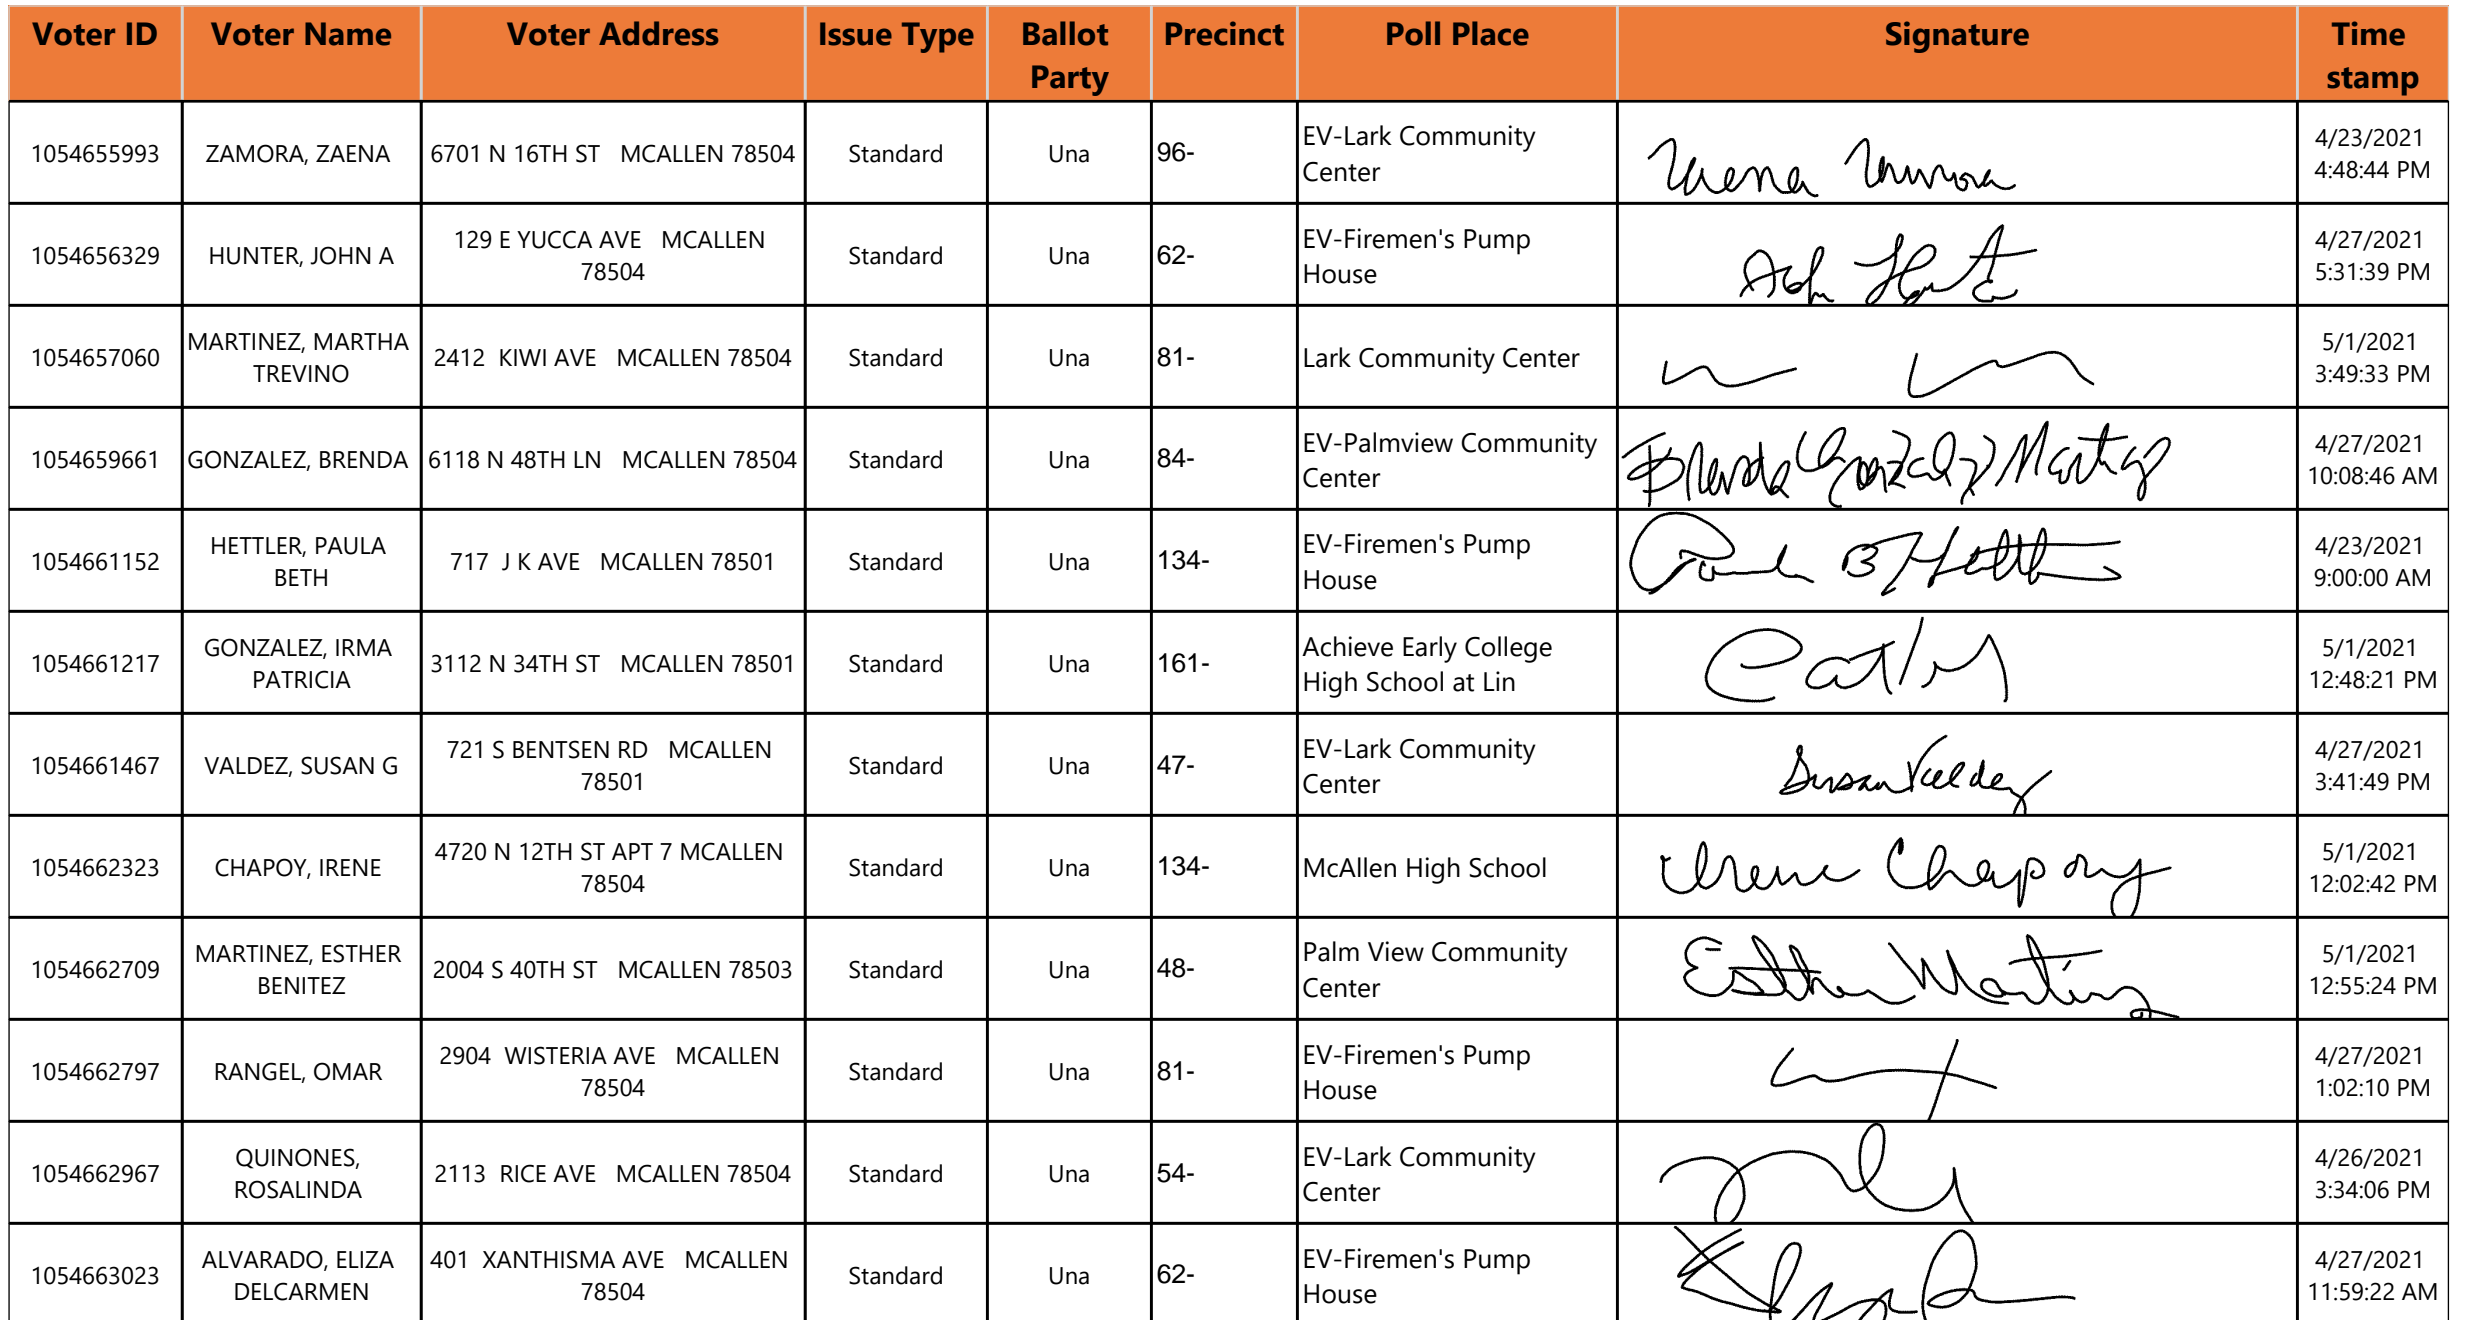 Voter ID Voter Name Voter Address Issue Type Ballot Party Precinct Poll Place Signature Time stamp
1054655993 ZAMORA, ZAENA 6701 N 16TH ST MCALLEN 78504 Standard Una 96- EV-Lark Community Center 4/23/2021 4:48:44 PM
1054656329 HUNTER, JOHN A 129 E YUCCA AVE MCALLEN 78504 Standard Una 62- EV-Firemen's Pump House 4/27/2021 5:31:39 PM
1054657060 MARTINEZ, MARTHA TREVINO 2412 KIWI AVE MCALLEN 78504 Standard Una 81- Lark Community Center 5/1/2021 3:49:33 PM
1054659661 GONZALEZ, BRENDA 6118 N 48TH LN MCALLEN 78504 Standard Una 84- EV-Palmview Community Center Brenda Gonzalez Martinez 4/27/2021 10:08:46 AM
1054661152 HETTLER, PAULA BETH 717 J K AVE MCALLEN 78501 Standard Una 134- EV-Firemen's Pump House 4/23/2021 9:00:00 AM
1054661217 GONZALEZ, IRMA PATRICIA 3112 N 34TH ST MCALLEN 78501 Standard Una 161- Achieve Early College High School at Lin 5/1/2021 12:48:21 PM
1054661467 VALDEZ, SUSAN G 721 S BENTSEN RD MCALLEN 78501 Standard Una 47- EV-Lark Community Center Susan Valdez 4/27/2021 3:41:49 PM
1054662323 CHAPOY, IRENE 4720 N 12TH ST APT 7 MCALLEN 78504 Standard Una 134- McAllen High School Irene Chapoy 5/1/2021 12:02:42 PM
1054662709 MARTINEZ, ESTHER BENITEZ 2004 S 40TH ST MCALLEN 78503 Standard Una 48- Palm View Community Center Esther Martinez 5/1/2021 12:55:24 PM
1054662797 RANGEL, OMAR 2904 WISTERIA AVE MCALLEN 78504 Standard Una 81- EV-Firemen's Pump House 4/27/2021 1:02:10 PM
1054662967 QUINONES, ROSALINDA 2113 RICE AVE MCALLEN 78504 Standard Una 54- EV-Lark Community Center 4/26/2021 3:34:06 PM
1054663023 ALVARADO, ELIZA DELCARMEN 401 XANTHISMA AVE MCALLEN 78504 Standard Una 62- EV-Firemen's Pump House 4/27/2021 11:59:22 AM